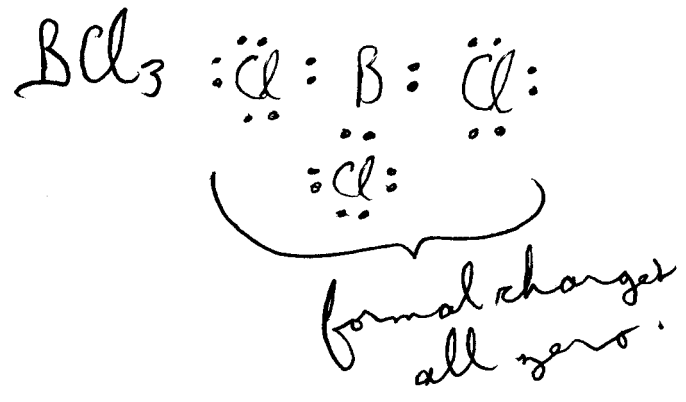 BCl3 :Cl : B : Cl:
:Cl:
formal charges
all zero.